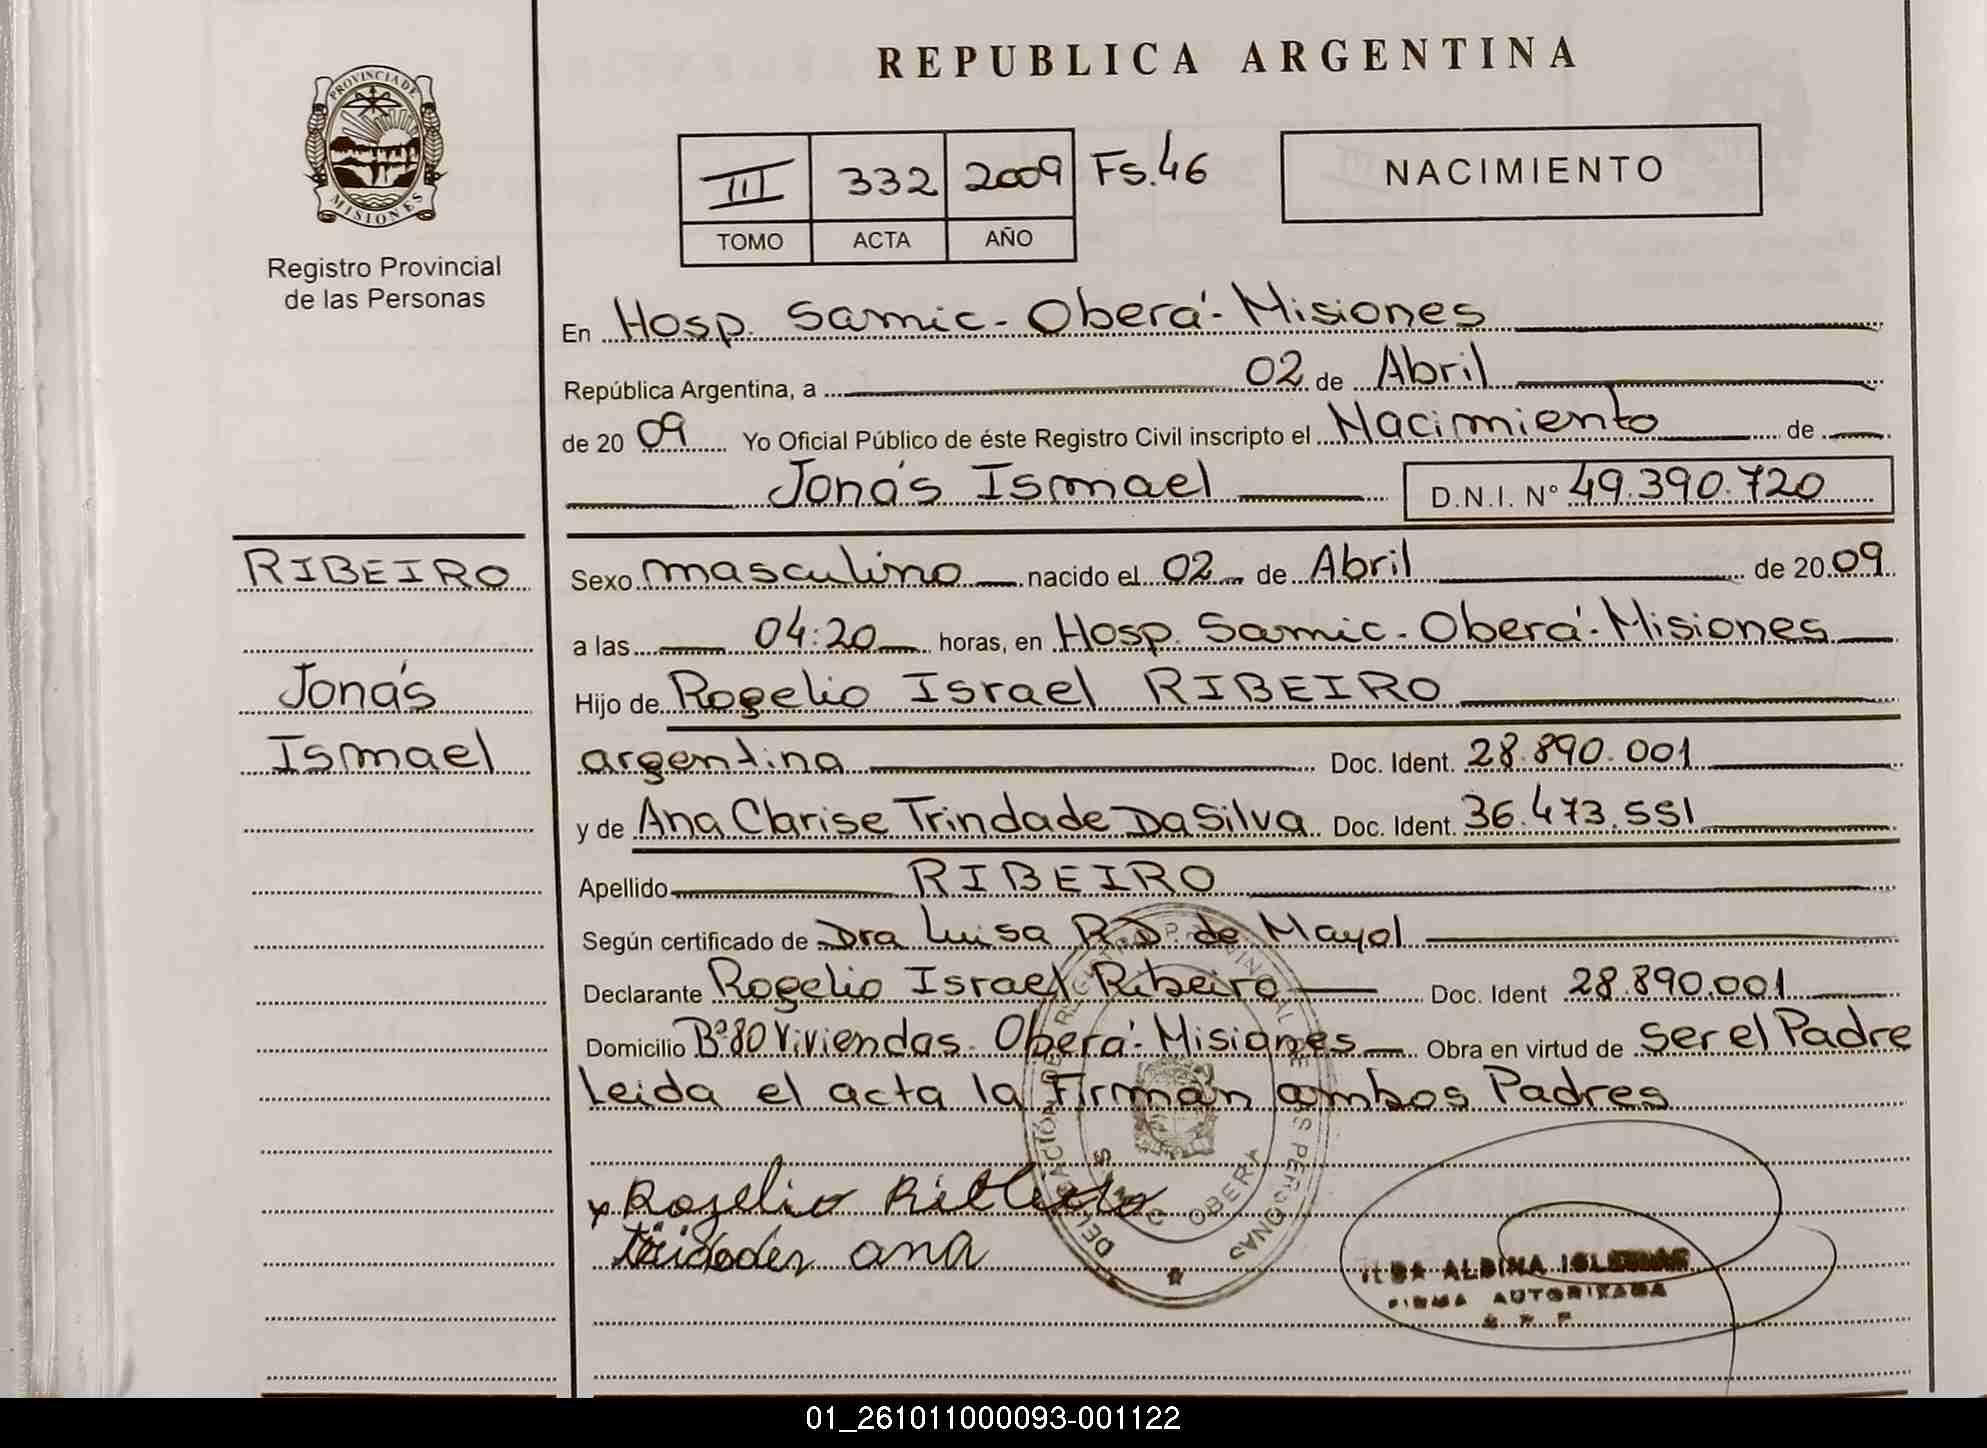 REPUBLICA ARGENTINA
PROVINCIA DE MISIONES
Registro Provincial
de las Personas
III 332 2009 Fs.46
TOMO ACTA AÑO
NACIMIENTO
En Hosp. Samic - Oberá - Misiones
República Argentina, a 02 de Abril
de 2009 Yo Oficial Público de éste Registro Civil inscripto el Nacimiento de
Jonás Ismael D.N.I. Nº 49.390.720
RIBEIRO
Jonás
Ismael
Sexo masculino nacido el 02 de Abril de 2009
a las 04:20 horas, en Hosp. Samic - Oberá - Misiones
Hijo de Rogelio Israel RIBEIRO
argentina Doc. Ident. 28.890.001
y de Ana Clarise Trindade Da Silva Doc. Ident. 36.473.551
Apellido RIBEIRO
Según certificado de Dra Luisa R.D. de Mayol
Declarante Rogelio Israel Ribeiro Doc. Ident 28.890.001
Domicilio Bº 80 Viviendas - Oberá - Misiones Obra en virtud de ser el Padre
Leida el acta la Firman ambos Padres
x Rogelio Ribeiro
ana
DELEGACIÓN DE REGISTRO PROVINCIAL DE LAS PERSONAS
SAMIC OBERA
ALBINA
FIRMA AUTORIZADA
01_261011000093-001122